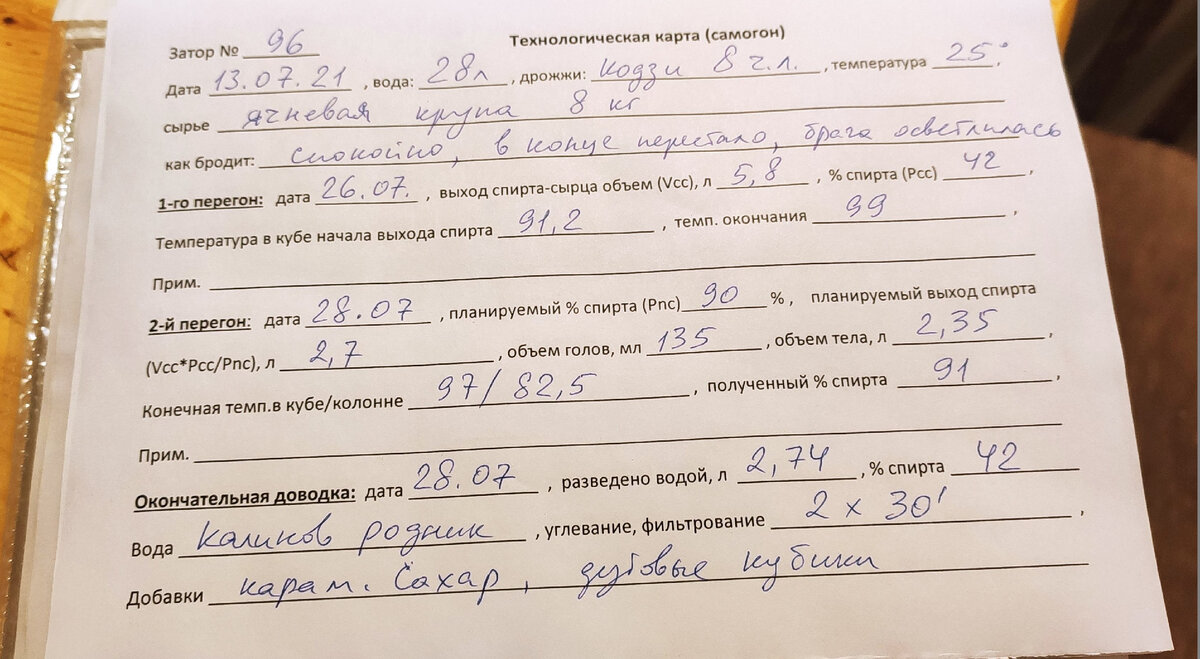 Технологическая карта (самогон)
Затор № 96
Дата 13.07.21, вода: 28л, дрожжи: кодзи 8 ч.л., температура 25°,
сырье ячневая крупа 8 кг
как бродит: спокойно, в конце перестало, брага осветлилась
1-го перегон: дата 26.07., выход спирта-сырца объем (Vcc), л 5,8, % спирта (Pcc) 42,
Температура в кубе начала выхода спирта 91,2, темп. окончания 99,
Прим.
2-й перегон: дата 28.07, планируемый % спирта (Pnc) 90 %, планируемый выход спирта
(Vcc*Pcc/Pnc), л 2,7, объем голов, мл 135, объем тела, л 2,35,
Конечная темп.в кубе/колонне 97/82,5, полученный % спирта 91,
Прим.
Окончательная доводка: дата 28.07, разведено водой, л 2,74, % спирта 42
Вода Калинов родник, углевание, фильтрование 2 x 30',
Добавки карам. сахар, дубовые кубики